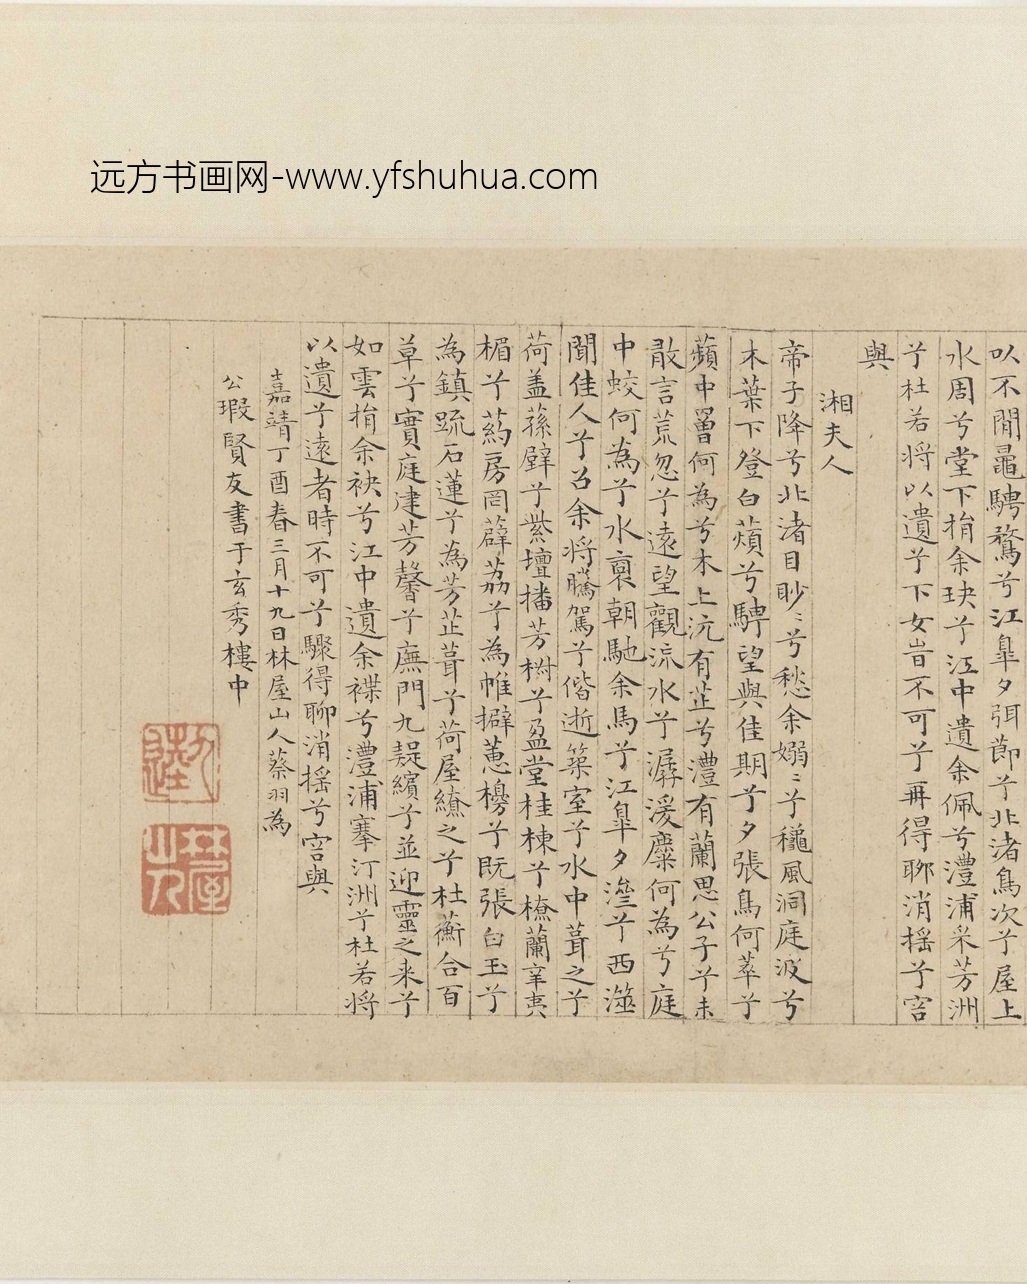 远方书画网-www.yfshuhua.com
以不閒鼂騁騖兮江皐夕弭莭兮北渚鳥次兮屋上
水周兮堂下捐余玦兮江中遺余佩兮澧浦采芳洲
兮杜若將以遺兮下女旹不可兮再得聊消揺兮容
與
湘夫人
帝子降兮北渚目眇〻兮愁余嫋〻兮龝風洞庭波兮
木葉下登白薠兮騁望與佳期兮夕張鳥何萃兮
蘋中罾何為兮木上沅有芷兮澧有蘭思公子兮未
敢言荒忽兮遠望觀流水兮潺湲麋何為兮庭
中蛟何為兮水裔朝馳余馬兮江皐夕濟兮西澨
聞佳人兮召余將騰駕兮偕逝築室兮水中葺之兮
荷盖蓀壁兮紫壇播芳椒兮盈堂桂棟兮橑蘭辛夷
楣兮葯房罔薜荔兮為帷擗蕙櫋兮既張白玉兮
為鎮疏石蘭兮為芳芷葺兮荷屋繚之兮杜蘅合百
草兮實庭建芳馨兮廡門九嶷繽兮並迎靈之来兮
如雲捐余袂兮江中遺余褋兮澧浦搴汀洲兮杜若將
以遺兮遠者時不可兮驟得聊消揺兮容與
嘉靖丁酉春三月十九日林屋山人蔡羽為
公瑕賢友書于玄秀樓中
林屋山人